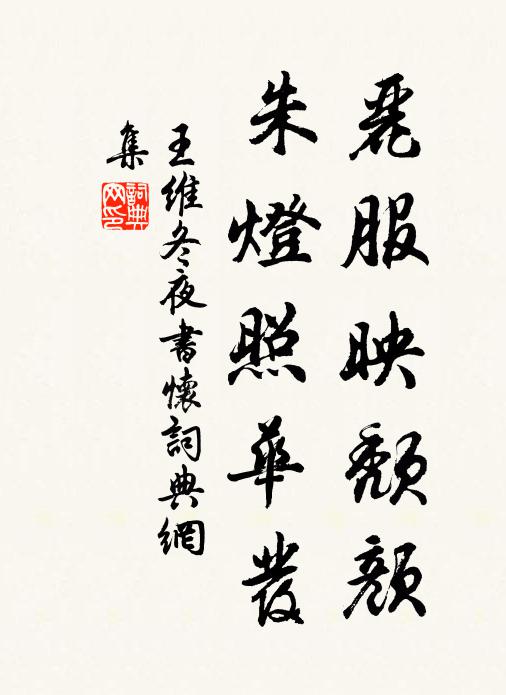 麗服映頹顏
朱燈照華發
王維冬夜書懷詞典網
集
詞典
网印